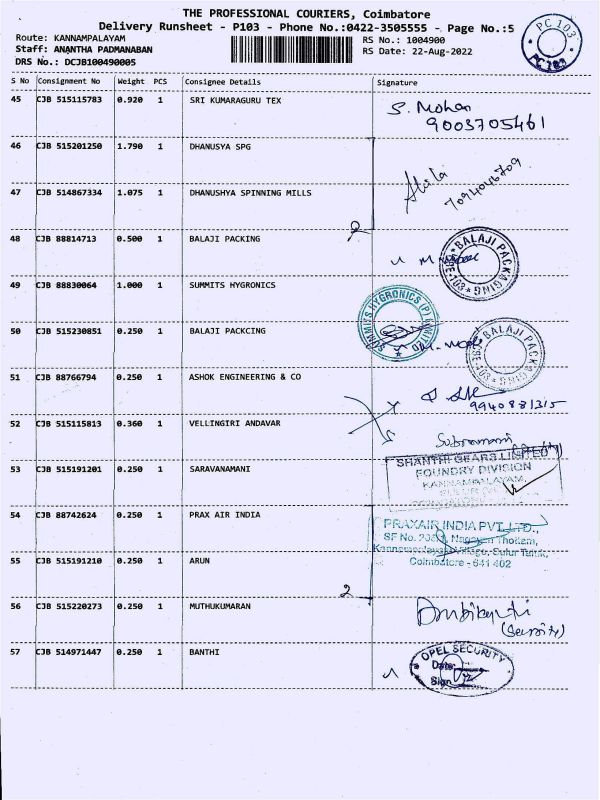 THE PROFESSIONAL COURIERS, Coimbatore
Delivery Runsheet - P103 - Phone No.:0422-3505555 - Page No.:5
PC 103
PC 103
Route: KANNAMPALAYAM
RS No.: 1004900
Staff: ANANTHA PADMANABAN
RS Date: 22-Aug-2022
DRS No.: DCJB100490005
S No Consignment No Weight PCS Consignee Details Signature
45 CJB 515115783 0.920 1 SRI KUMARAGURU TEX S. Mohan
9003705461
46 CJB 515201250 1.790 1 DHANUSYA SPG
7094046709
47 CJB 514867334 1.075 1 DHANUSHYA SPINNING MILLS
2
48 CJB 88814713 0.500 1 BALAJI PACKING BALAJI PACKAGING
49 CJB 88830064 1.000 1 SUMMITS HYGRONICS SUMMITS HYGRONICS (P) LIMITED
50 CJB 515230851 0.250 1 BALAJI PACKCING BALAJI PACKAGING
51 CJB 88766794 0.250 1 ASHOK ENGINEERING & CO
9940881315
52 CJB 515115813 0.360 1 VELLINGIRI ANDAVAR Subramani
(Security)
53 CJB 515191201 0.250 1 SARAVANAMANI SHANTHI GEARS LIMITED
FOUNDRY DIVISION
KANNAMPALAYAM,
54 CJB 88742624 0.250 1 PRAX AIR INDIA PRAXAIR INDIA PVT. LTD.,
SF No. Nagayan Thottam,
Kannampalayam Village, Sulur Taluk,
55 CJB 515191210 0.250 1 ARUN Coimbatore - 641 402
2
56 CJB 515220273 0.250 1 MUTHUKUMARAN
(Security)
57 CJB 514971447 0.250 1 BANTHI OPEL SECURITY
Date:
Sign